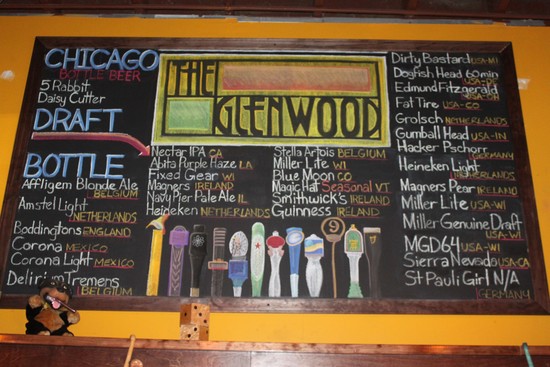 CHICAGO
BOTTLE BEER
5 Rabbit
Daisy Cutter
DRAFT
BOTTLE
Affligem Blonde Ale
BELGIUM
Amstel Light
NETHERLANDS
Boddingtons ENGLAND
Corona MEXICO
Corona Light MEXICO
Delirium Tremens
BELGIUM
THE
GLENWOOD
Nectar IPA CA
Abita Purple Haze LA
Fixed Gear WI
Magners IRELAND
Navy Pier Pale Ale IL
Heineken NETHERLANDS
Stella Artois BELGIUM
Miller Lite WI
Blue Moon CO
Magic Hat Seasonal VT
Smithwick's IRELAND
Guinness IRELAND
9
Dirty Bastard USA-MI
Dogfish Head 60min
Edmund Fitzgerald
USA-OH
Fat Tire USA-CO
Grolsch NETHERLANDS
Gumball Head USA-IN
Hacker Pschorr
GERMANY
Heineken Light
NETHERLANDS
Magners Pear IRELAND
Miller Lite USA-WI
Miller Genuine Draft
USA-WI
MGD64 USA-WI
Sierra Nevada USA-CA
St Pauli Girl N/A
GERMANY